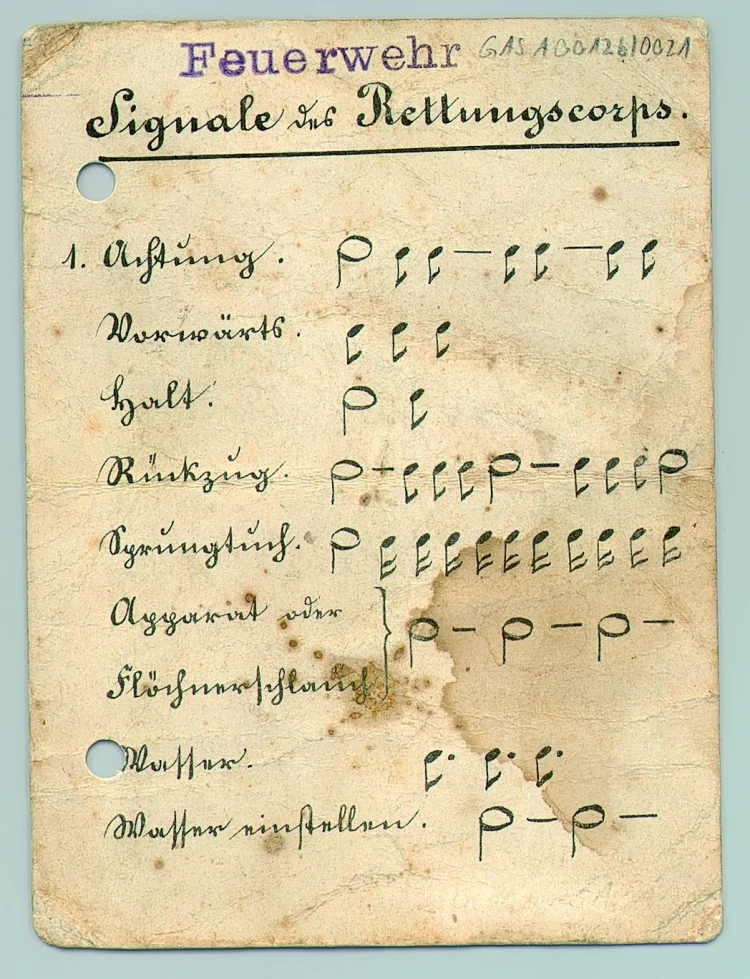 Feuerwehr GAS A 0012b/0021
Signale des Rettungscorps.
1. Achtung.
Vorwärts.
Halt.
Rückzug.
Sprungtuch.
Apparat oder
Flöchnerschlauch
Wasser.
Wasser einstellen.